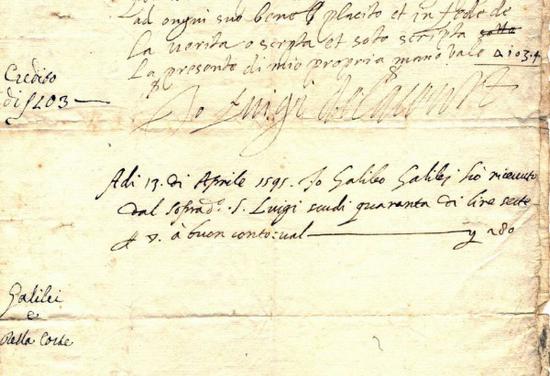 ad ogni suo bene placito et in fede de
La verita o scripta et soto scripta
La presente di mio propria mano vale
Credito
di
Io Luigi
Adi 13. di Aprile 1595. Io Galileo Galilei hò riceuuto
dal soprad.º S. Luigi scudi quaranta di lire sette
à buon conto: ual 280
Galilei
e
Della Corte